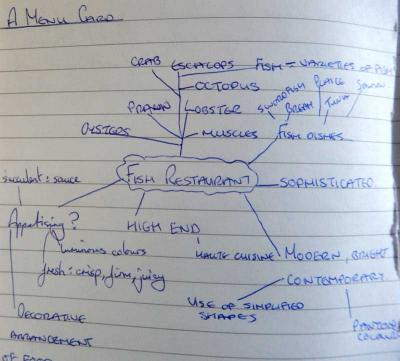 A MENU CARD
CRAB
ESCALOPS
FISH = VARIETIES OF FISH
OCTOPUS
PRAWN
LOBSTER
SWORDFISH
BREAM
PLAICE
TUNA
OYSTERS
MUSCLES
FISH DISHES
succulent: sauce
FISH RESTAURANT
SOPHISTICATED
Appetising?
HIGH END
luminous colours
HAUTE CUISINE
MODERN, BRIGHT
fresh: crisp, firm, juicy
CONTEMPORARY
USE OF SIMPLIFIED
SHAPES
DECORATIVE
ARRANGEMENT
OF FOOD